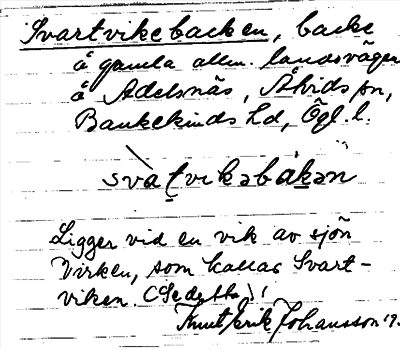 Svartvikebacken, backe
å gamla allm. landsvägen
å Adelsnäs, Åtvids sn,
Bankekinds hd, Ögl. l.
svat̠vikəbák̠ən
Ligger vid en vik av sjön
Virken, som kallas Svart-
viken. (Se detta)!
Knut Erik Johansson 19.